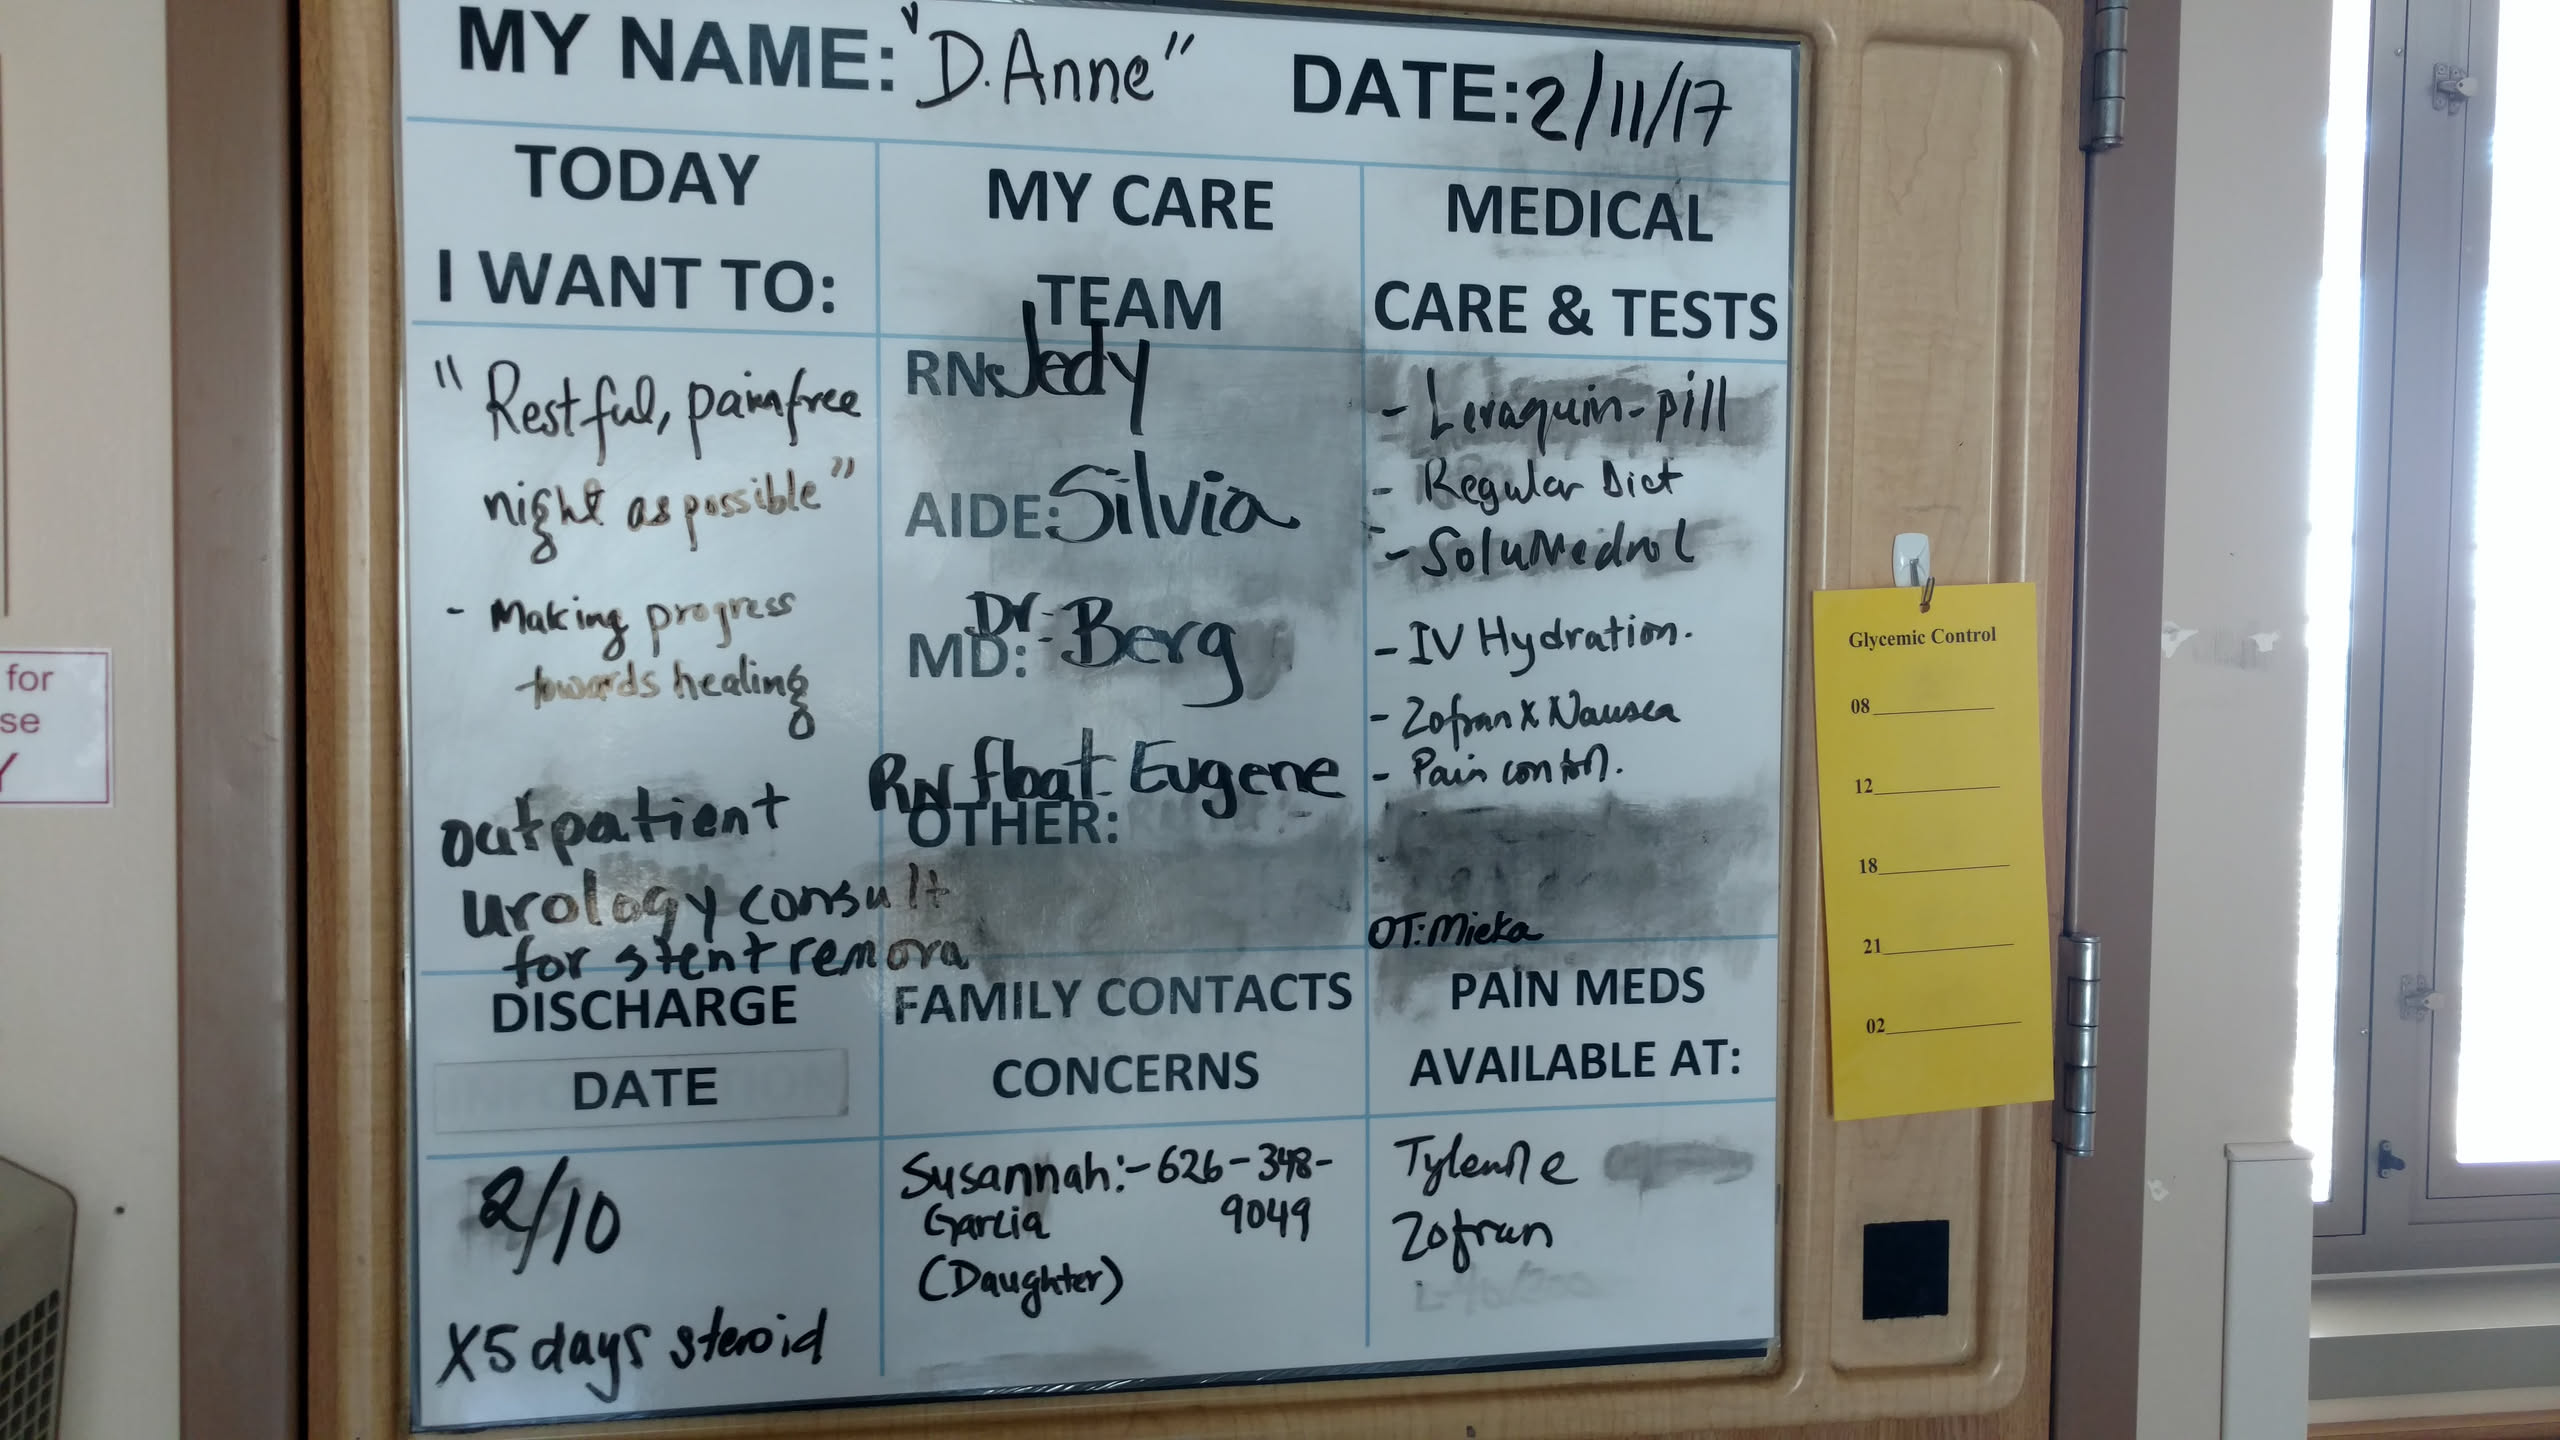 MY NAME: "D. Anne" DATE: 2/11/17
TODAY
I WANT TO:
"Restful, painfree
night as possible"
- Making progress
towards healing
outpatient
urology consult
for stent remova
MY CARE
TEAM
RN: Jedy
AIDE: Silvia
MD: Dr. Berg
RN float Eugene
OTHER:
MEDICAL
CARE & TESTS
- Levaquin-pill
- Regular Diet
- SoluMedrol
- IV Hydration.
- Zofran X Nausea
- Pain control.
OT: Mieka
DISCHARGE
DATE
2/10
X5 days steroid
FAMILY CONTACTS
CONCERNS
Susannah:- 626-348-
Garcia 9049
(Daughter)
PAIN MEDS
AVAILABLE AT:
Tylenole
Zofran
Glycemic Control
08
12
18
21
02
for
se
Y